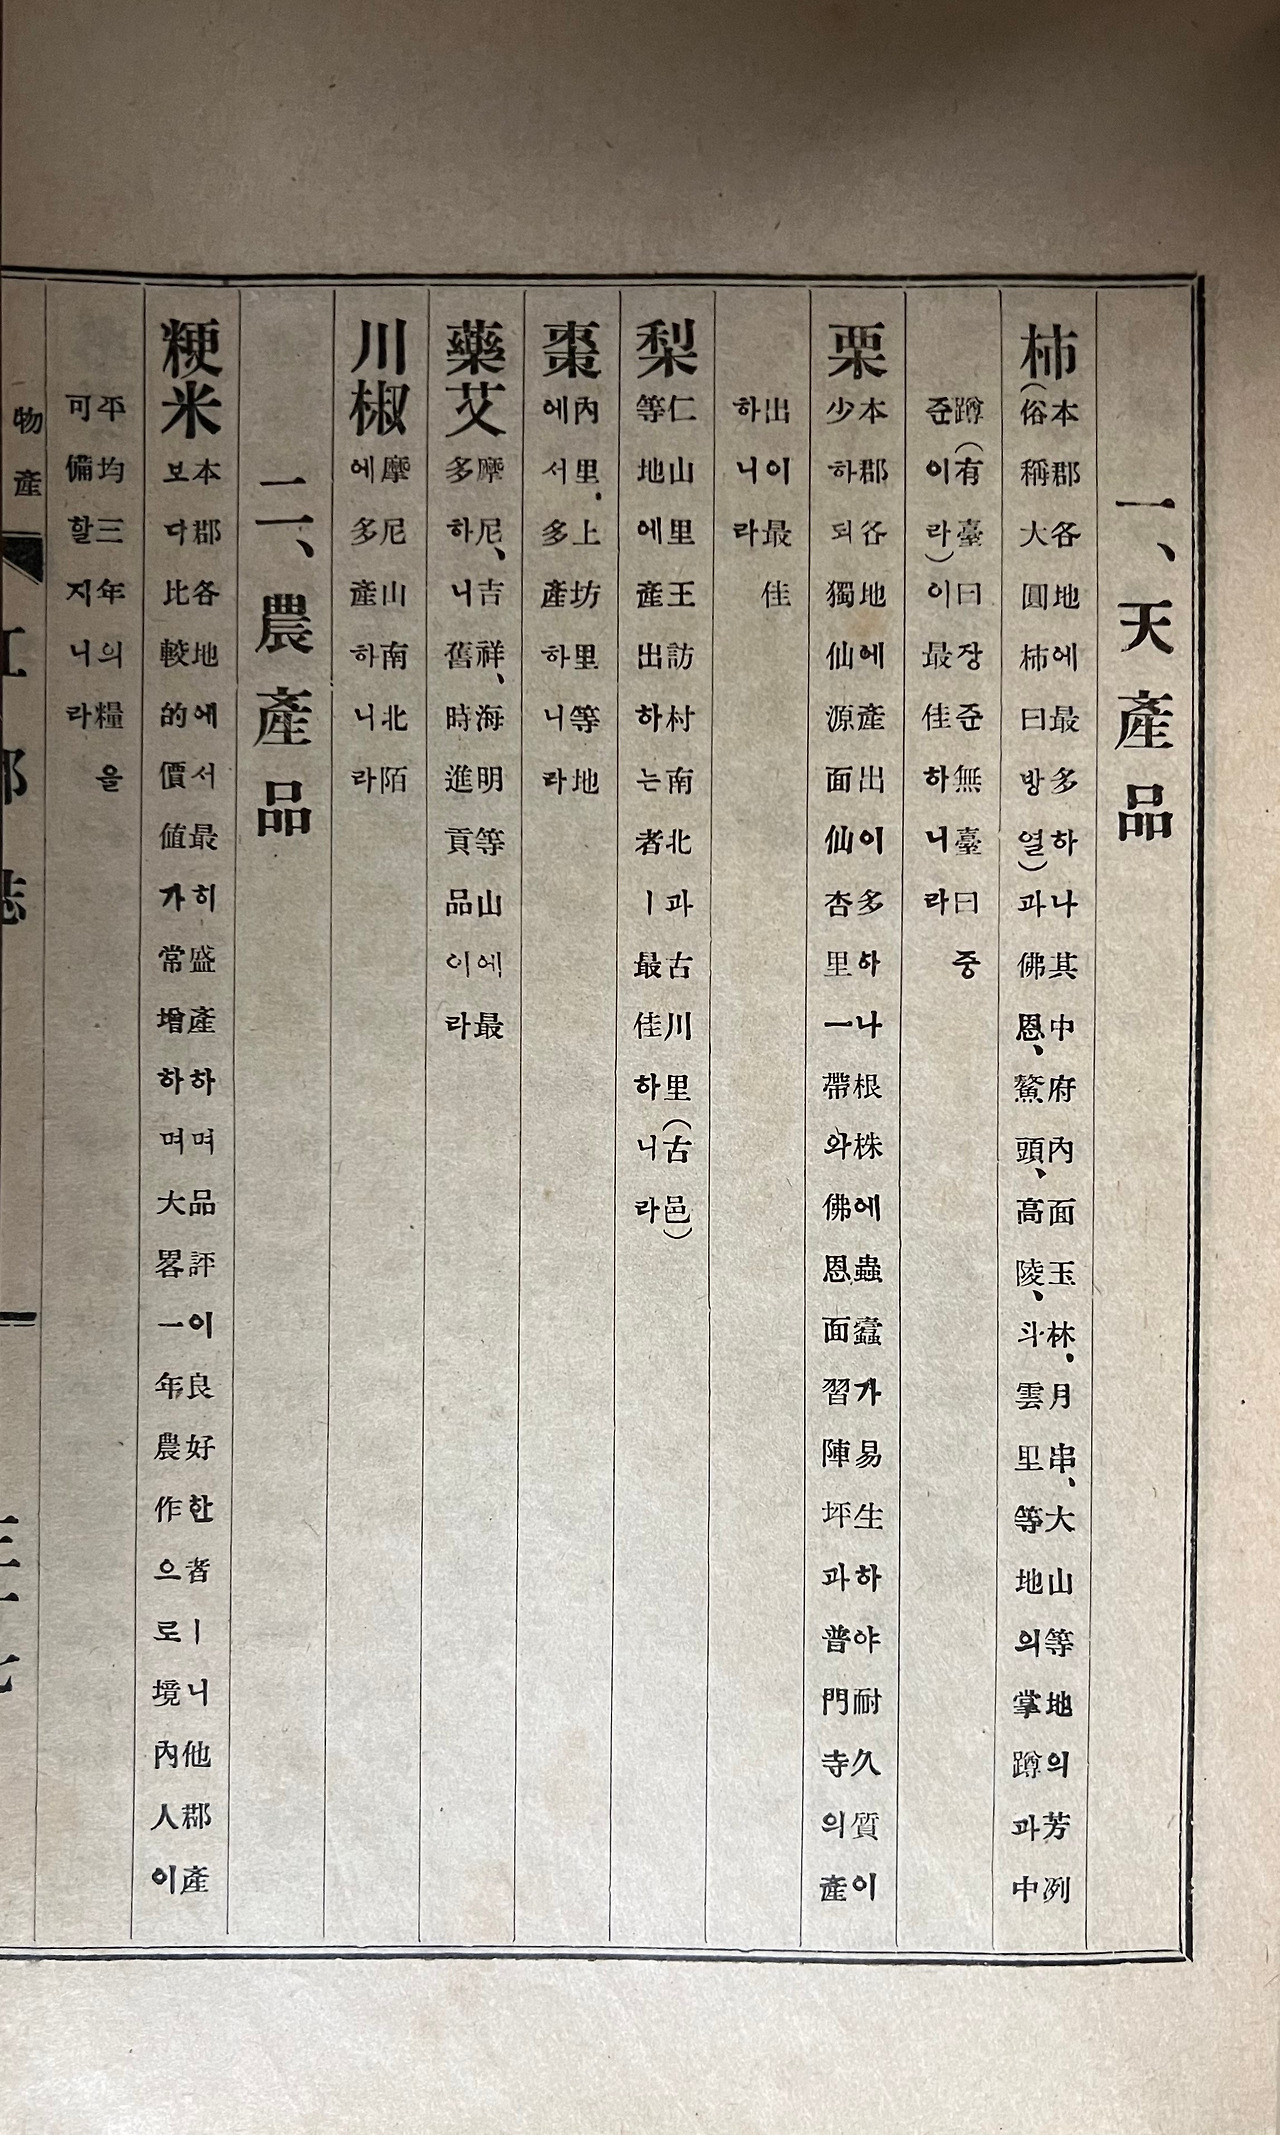 一、天產品
柿 本郡各地에最多하나其中府內面玉林、月串、大山等地의芳洌
(俗稱大圓柿曰방열)과佛恩、鰲頭、高陵、斗雲里等地의掌蹲과中
蹲(有臺曰장준無臺曰중
준이라)이最佳하니라
栗 本郡各地에產出이多하나根株에蟲蠹가易生하야耐久質이
少하되獨仙源面仙杏里一帶와佛恩面習陣坪과普門寺의產
出이最佳
하니라
梨 仁山里王訪村南北과古川里(古邑)
等地에產出하는者ㅣ最佳하니라
棗 內里、上坊里等地
에서多產하니라
藥艾 摩尼、吉祥、海明等山에最
多하니舊時進貢品이라
川椒 摩尼山南北陌
에多產하니라
二、農產品
粳米 本郡各地에서最히盛產하며品評이良好한者ㅣ니他郡產
보다比較的價値가常增하며大畧一年農作으로境內人이
平均三年의糧을
可備할지니라
物產